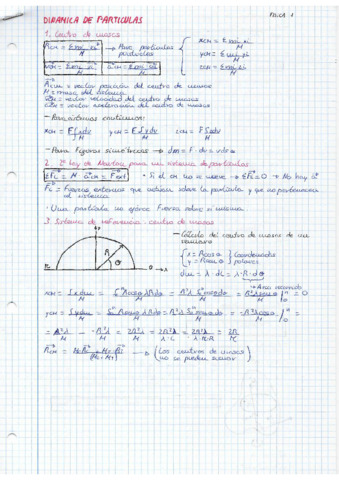 FISICA 1
DINAMICA DE PARTICULAS
1. Centro de masas
R⃗CM = Σmi·ri⃗ / M → Para particulas puntuales
xCM = Σmi·xi / M
yCM = Σmi·yi / M
zCM = Σmi·zi / M
v⃗CM = Σmi·vi⃗ / M
a⃗CM = Σmi·ai⃗ / M
R⃗CM = vector posición del centro de masas
M = masa del sistema
v⃗CM = vector velocidad del centro de masas
a⃗CM = vector aceleración del centro de masas
- Para sistemas continuos:
xCM = ∫xdm / M yCM = ∫ydm / M zCM = ∫zdm / M
- Para figuras simétricas → dm =
2. 2ª Ley de Newton para un sistema de partículas
ΣFe⃗ = M·a⃗CM = F⃗ext
· Si el CM no se mueve → ΣFe⃗ = 0 → No hay a⃗
Fe⃗ = Fuerzas externas que actúan sobre la partícula y que no pertenecen
al sistema
· Una partícula no ejerce fuerza sobre si misma
3. Sistema de referencia: centro de masas
- Cálculo del centro de masas de un
x = Rcosθ
y = Rsenθ
Coordenadas
polares
dm = λ·dL = λ·R·dθ
Arco recorrido
R
θ
π
0
xCM = ∫xdm / M = ∫Rcosθ λRdθ / M = R²λ∫cosθdθ / M = R²λsenθ / M |π 0 = 0
yCM = ∫ydm / M = ∫Rsenθ λRdθ / M = R²λ∫senθdθ / M = -R²λcosθ / M |π 0 =
= R²λ / M - -R²λ / M = 2R²λ / M = 2R²λ / λ·L = 2R²λ / λ·π·R = 2R / π
R⃗CM = M1·R1⃗ + M2·R2⃗ / (M1+M2) → (Los centros de masas
no se pueden sumar)